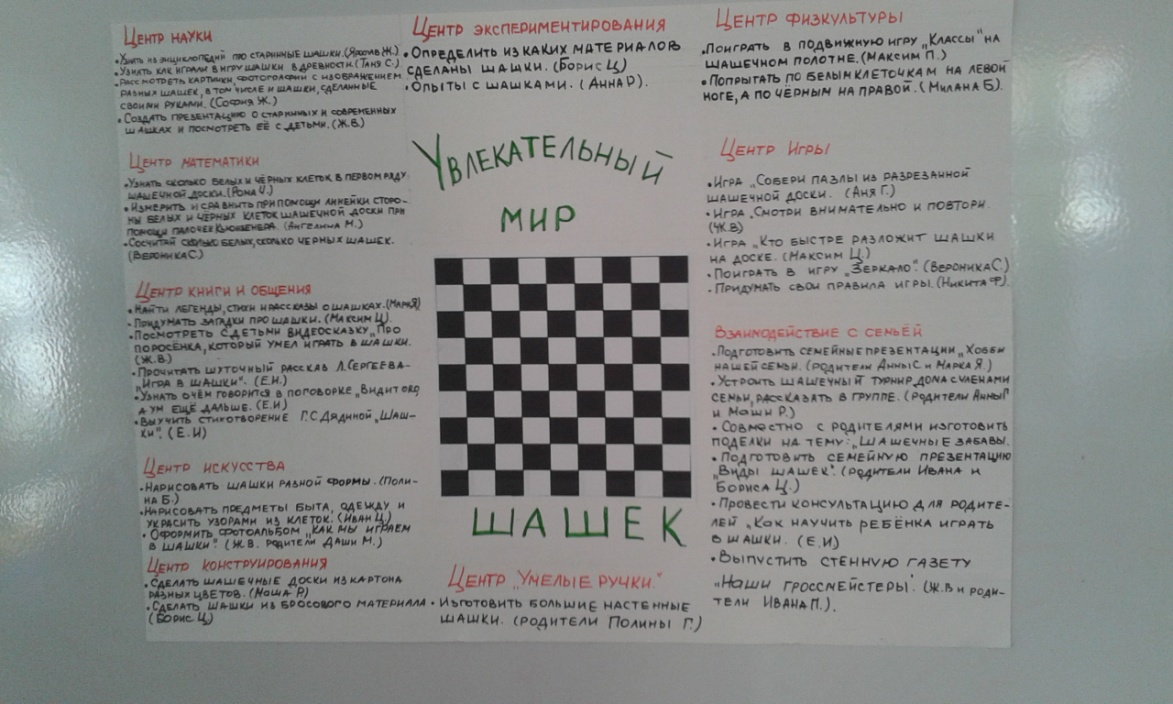 Центр науки
•Узнать из энциклопедий про старинные шашки.(Ярослав Ж.)
•Узнать как играли в игру шашки в древности.(Таня С.)
•Рассмотреть картинки, фотографии с изображением
разных шашек, в том числе и шашки, сделанные
своими руками. (София Ж.)
•Создать презентацию о старинных и современных
шашках и посмотреть её с детьми.(Ж.В.)
Центр математики
•Узнать сколько белых и чёрных клеток в первом ряду
шашечной доски.(Рома Ч.)
•Измерить и сравнить при помощи линейки сторо-
ны белых и чёрных клеток шашечной доски при
помощи палочек Кьюизенера. (Ангелина М.)
•Сосчитай сколько белых, сколько черных шашек.
(Вероника С.)
Центр книги и общения
•Найти легенды, стихи и рассказы о шашках.(Марк Я)
•Придумать загадки про шашки. (Максим Ц).
•Посмотреть с детьми видеосказку „Про
поросёнка, который умел играть в шашки.
(Ж.В.)
•Прочитать шуточный рассказ Л.Сергеева-
„Игра в шашки". (Е.И.)
•Узнать о чём говорится в поговорке „Видит око
а ум ещё дальше. (Е.И)
•Выучить стихотворение Г.С Дядиной „Шаш-
ки". (Е.И)
Центр искусства
•Нарисовать шашки разной формы. (Поли-
на Б.)
•Нарисовать предметы быта, одежду и
украсить узорами из клеток. (Иван Ц.)
•Оформить фотоальбом „Как мы играем
в шашки". (Ж.В. родители Даши М.)
Центр конструирования
•Сделать шашечные доски из картона
разных цветов. (Маша Р)
•Сделать шашки из бросового материала
(Борис Ц.)
Центр экспериментирования
•Определить из каких материалов
сделаны шашки. (Борис Ц)
•Опыты с шашками. (Анна Р).
Увлекательный
мир
шашек
Центр „Умелые ручки."
•Изготовить большие настенные
шашки. (родители Полины Г.)
Центр физкультуры
•Поиграть в подвижную игру „Классы" на
шашечном полотне.(Максим П.)
•Попрыгать по белым клеточкам на левой
ноге, а по чёрным на правой. (Милана Б).
Центр Игры
•Игра „Собери пазлы из разрезанной
шашечной доски. (Аня Г.)
•Игра „Смотри внимательно и повтори.
(Ж.В)
•Игра „Кто быстре разложит шашки
на доске. (Максим Ц.)
•Поиграть в игру „Зеркало". (Вероника С.)
•Придумать свои правила игры.(Никита Ф).
Взаимодействие с семьёй
•Подготовить семейные презентации „Хобби
нашей семьи. (родители Анны С и Марка Я.)
•Устроить шашечный турнир дома с членами
семьи, рассказать в группе. (родители Анны Г
и Маши Р.)
•Совместно с родителями изготовить
поделки на тему: „Шашечные забавы.
•Подготовить семейную презентацию
„Виды шашек". (родители Ивана и
Бориса Ц.)
•Провести консультацию для родите-
лей „Как научить ребёнка играть
в шашки. (Е.И)
•Выпустить стенную газету
„Наши гроссмейстеры". (Ж.В и роди-
тели Ивана П.).